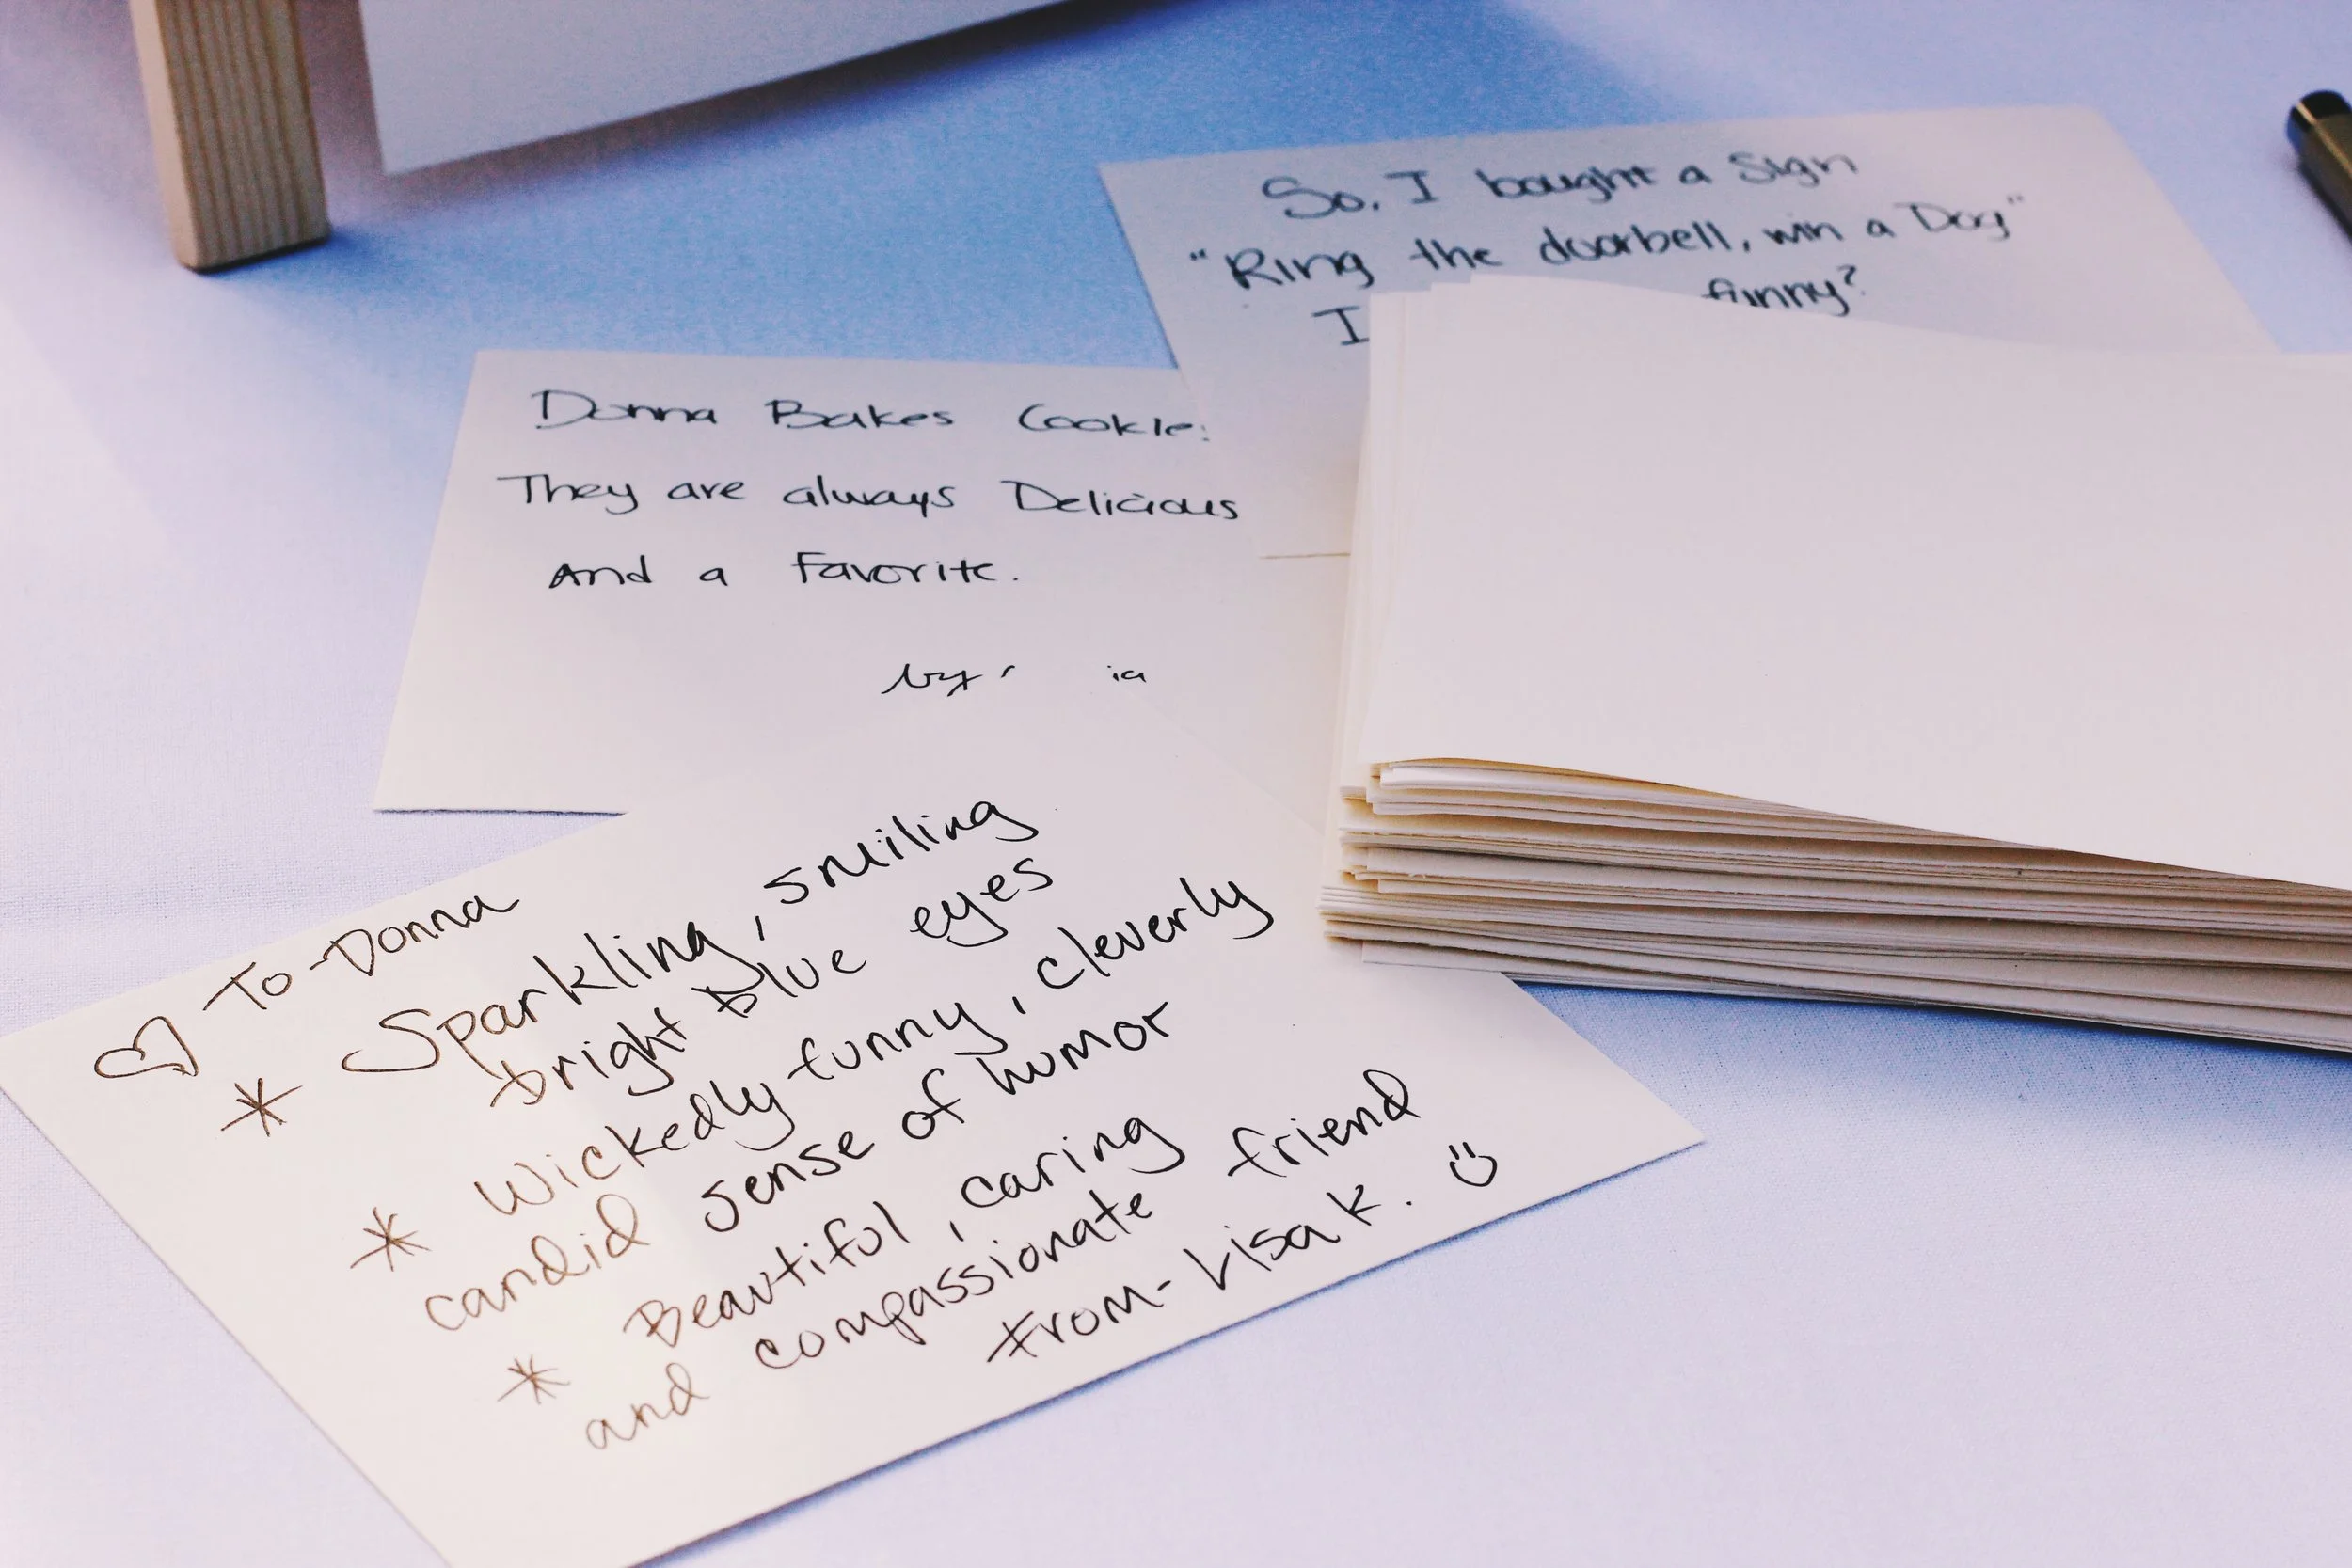 So, I bought a Sign
"Ring the doorbell, win a Dog"
I funny?
Donna Bakes Cookie
They are always Delicious
And a Favorite.
by:
To-Donna
* Sparkling, smiling
bright blue eyes
* Wickedly funny, cleverly
candid sense of humor
* Beautiful, caring
and compassionate friend
From-Lisa K.